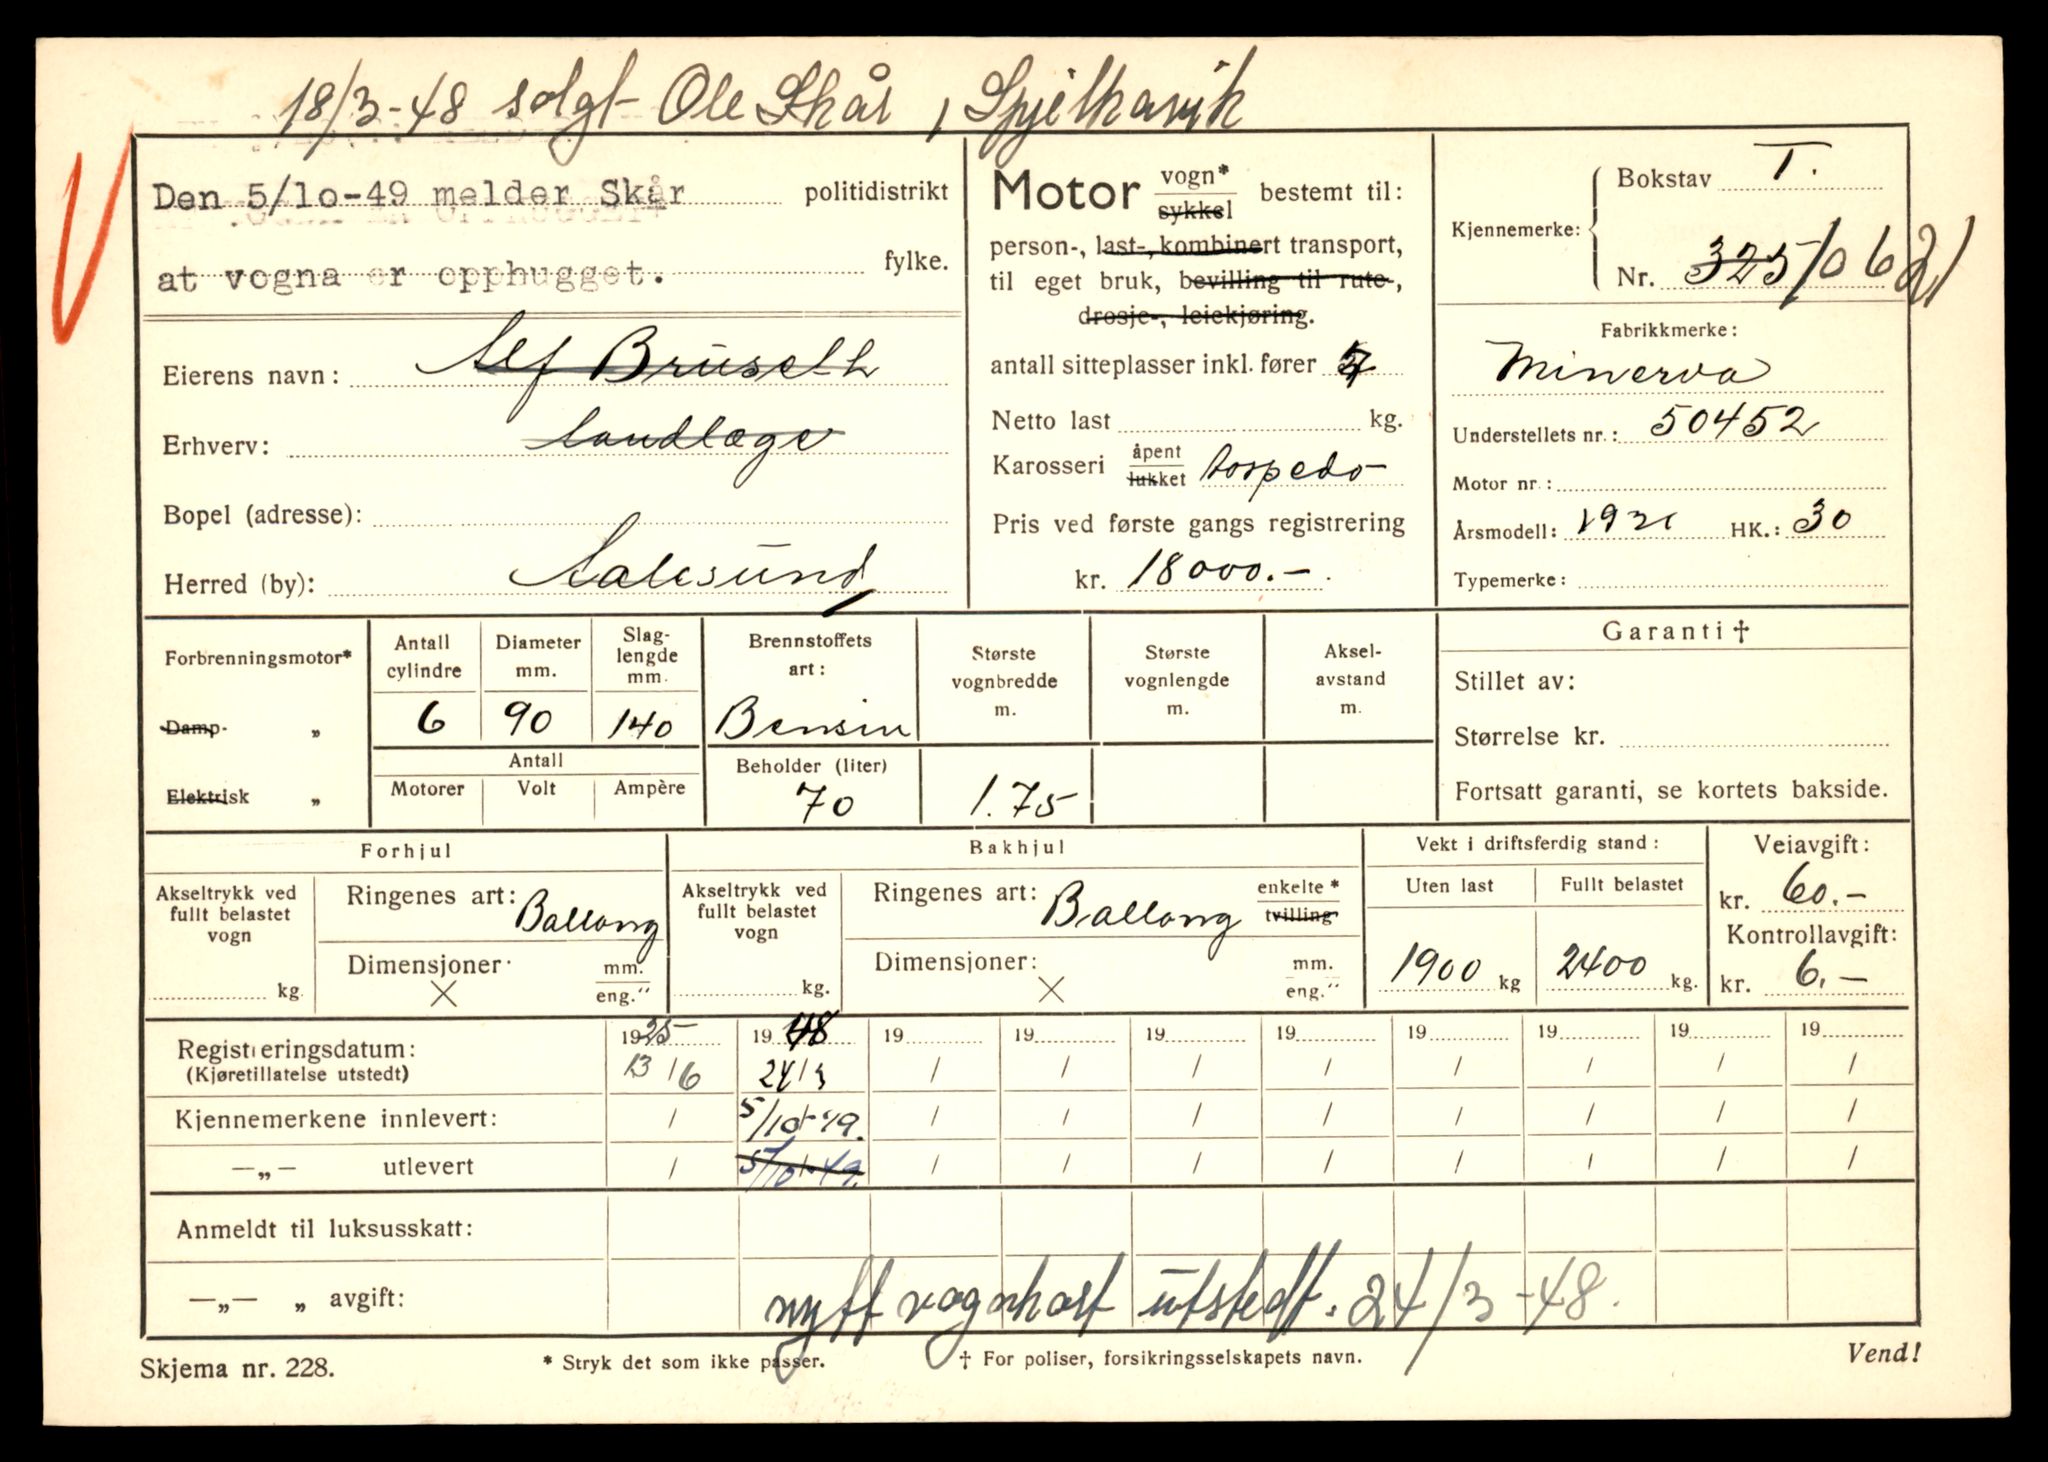 18/3-48 solgt Ole Skår, Spjelkavik
Den 5/10-49 melder Skår politidistrikt
at vogna er opphugget. fylke.
Eierens navn: Alf Bruseth
Erhverv: tandlæge
Bopel (adresse):
Herred (by): Aalesund
Motor vogn* sykkel bestemt til:
person-, last-, kombinert transport,
til eget bruk, bevilling til rute-,
drosje-, leiekjøring.
antall sitteplasser inkl. fører 7
Netto last kg.
Karosseri åpent lukket torpedo
Pris ved første gangs registrering
kr. 18000.-
Kjennemerke: Bokstav T.
Nr. 325 10621
Fabrikkmerke:
Minerva
Understellets nr.: 50452
Motor nr.:
Årsmodell: 1921 HK.: 30
Typemerke:
Forbrenningsmotor*
Damp- „
Elektrisk „
Antall cylindre 6
Diameter mm. 90
Slaglengde mm. 140
Antall
Motorer Volt Ampère
Brennstoffets art: Bensin
Beholder (liter) 70
Største vognbredde m. 1.75
Største vognlengde m.
Akselavstand m.
Garanti †
Stillet av:
Størrelse kr.
Fortsatt garanti, se kortets bakside.
Forhjul
Akseltrykk ved fullt belastet vogn kg.
Ringenes art: Ballong
Dimensjoner: × mm. eng.“
Bakhjul
Akseltrykk ved fullt belastet vogn kg.
Ringenes art: Ballong enkelte* tvilling
Dimensjoner: × mm. eng.“
Vekt i driftsferdig stand:
Uten last Fullt belastet
1900 kg 2400 kg.
Veiavgift:
kr. 60.-
Kontrollavgift:
kr. 6.-
1925 1948 19 19 19 19 19 19 19 19
Registreringsdatum: 13/6 24/3 / / / / / / / /
(Kjøretillatelse utstedt)
Kjennemerkene innlevert: / 5/10-49. / / / / / / / /
—„— utlevert / 5/10-49. / / / / / / / /
Anmeldt til luksusskatt:
—„— „ avgift: nytt vognkort utstedt. 24/3-48.
Skjema nr. 228. * Stryk det som ikke passer. † For poliser, forsikringsselskapets navn. Vend!